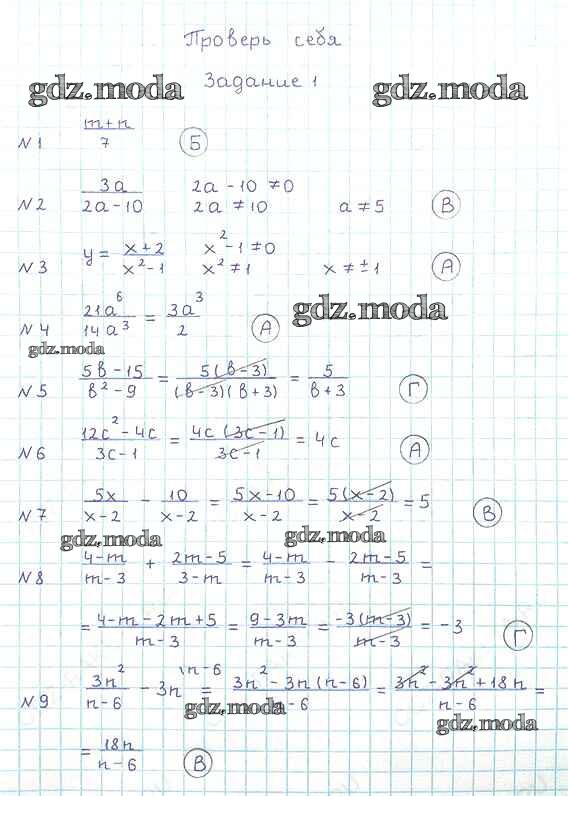 Проверь себя
Задание 1
gdz.moda gdz.moda
№1 (m+n)/7 Б
№2 3a/(2a-10) 2a-10≠0 2a≠10 a≠5 В
№3 y = (x+2)/(x²-1) x²-1≠0 x²≠1 x≠±1 А
№4 21a⁶/14a³ = 3a³/2 А
gdz.moda
gdz.moda
№5 (5в-15)/(в²-9) = 5(в-3)/((в-3)(в+3)) = 5/(в+3) Г
№6 (12c²-4c)/(3c-1) = 4c(3c-1)/(3c-1) = 4c А
№7 5x/(x-2) - 10/(x-2) = (5x-10)/(x-2) = 5(x-2)/(x-2) = 5 В
gdz.moda gdz.moda
№8 (4-m)/(m-3) + (2m-5)/(3-m) = (4-m)/(m-3) - (2m-5)/(m-3) =
= (4-m-2m+5)/(m-3) = (9-3m)/(m-3) = -3(m-3)/(m-3) = -3 Г
№9 3n²/(n-6) - 3n\n-6 = (3n²-3n(n-6))/(n-6) = (3n²-3n²+18n)/(n-6) =
gdz.moda gdz.moda
= 18n/(n-6) В